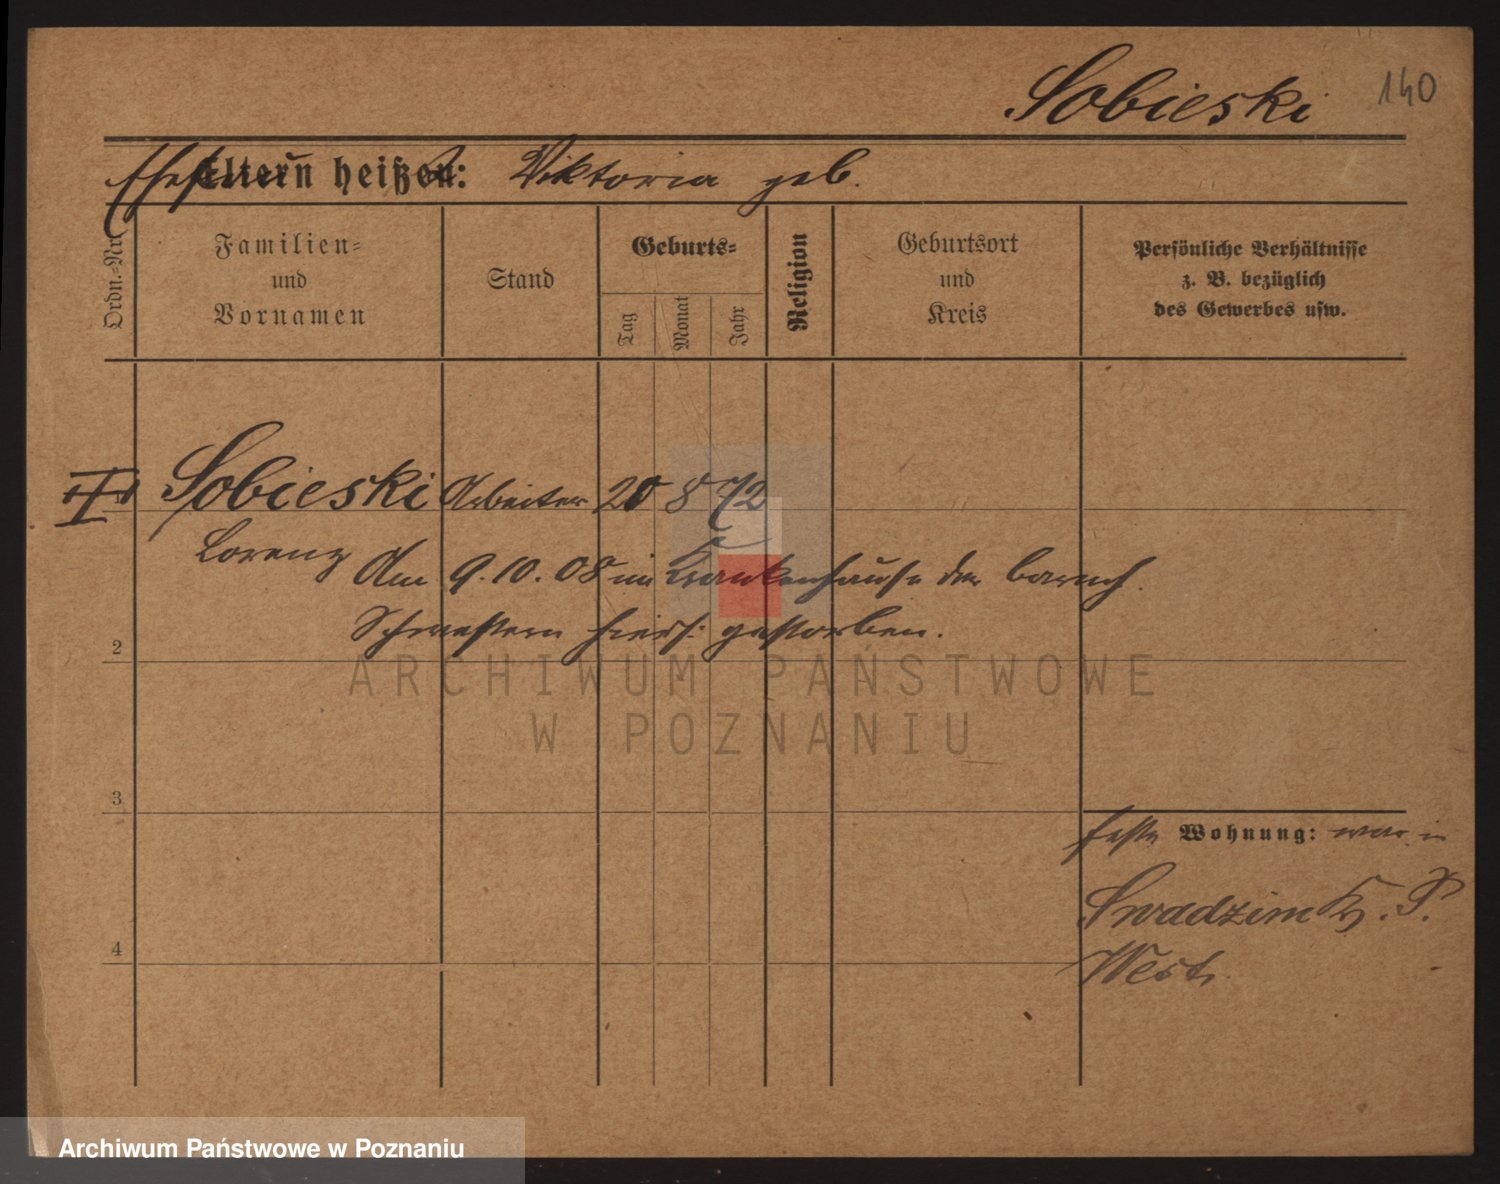 Sobieski 140
Eltern heißen: Viktoria geb.
Ordn.=Nr.
Familien=
und
Vornamen
Stand
Geburts=
Tag
Monat
Jahr
Religion
Geburtsort
und
Kreis
Persönliche Verhältnisse
z. B. bezüglich
des Gewerbes usw.
Sobieski Arbeiter 20 8 72
Lorenz
Am 9.10.08 im Krankenhause der barmh.
Schwestern hiers. gestorben.
2
3
4
feste Wohnung: war in
Swadzim Kr. P.
West.
ARCHIWUM PAŃSTWOWE
W POZNANIU
Archiwum Państwowe w Poznaniu